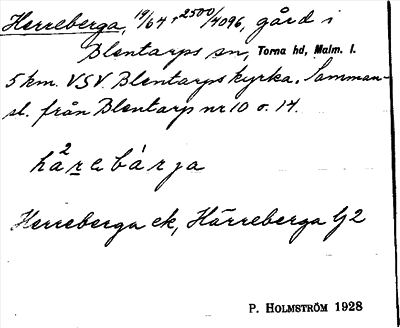 Herreberga, 19/64 + 2500/4096, gård i
Blentarps sn, Torna hd, Malm. l.
5 km. VSV Blentarps kyrka. Samman-
sl. från Blentarp nr 10 o. 14.
Herreberga ek, Härreberga Gj 2
P. HOLMSTRÖM 1928